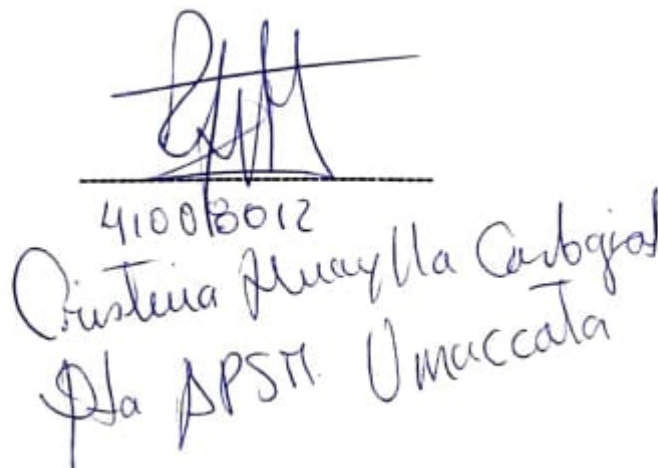 41008012
Cristina Huaylla Carbajal
Pta APSM. Umaccata